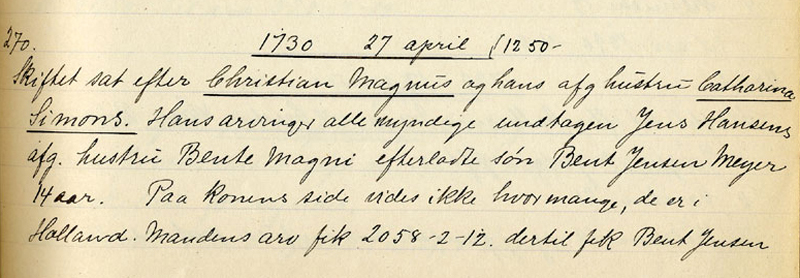 270. 1730 27 april f 1250-
Skiftet sat efter Christian Magnus og hans afg hustru Catharina
Simons. Hans arvinger alle myndige undtagen Jens Hansens
afg. hustru Bente Magni efterladte søn Bent Jensen Meyer
14 aar. Paa konens side vides ikke hvor mange, de er i
Holland. Mandens arv fik 2058-2-12. dertil fik Bent Jensen